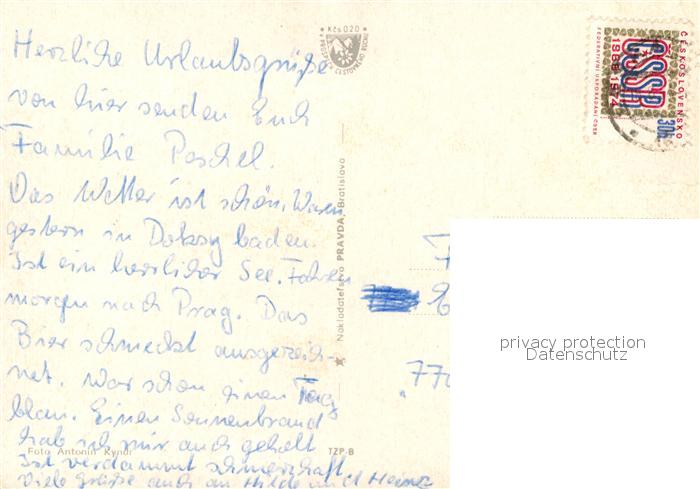 Herzliche Urlaubsgrüße
von hier senden Euch
Familie Poschel.
Das Wetter ist schön. Waren
gestern in Doksy baden.
Ist ein herrlicher See. Fahren
morgen nach Prag. Das
Bier schmeckt ausgezeich-
net. War schon einen Tag
blau. Einen Sonnenbrand
hab ich mir auch geholt
Ist verdammt schmerzhaft.
Viele Grüße auch an Hilde und Heinz
Foto Antonín
TZP-B
Kčs 0,20
CESTOVNÉHO RUCHU
Nakladateľstvo PRAVDA, Bratislava
ČESKOSLOVENSKO
ČSSR
1968-1974
30h
FEDERATIVNÍ USPOŘÁDÁNÍ ČSSR
770
privacy protection
Datenschutz